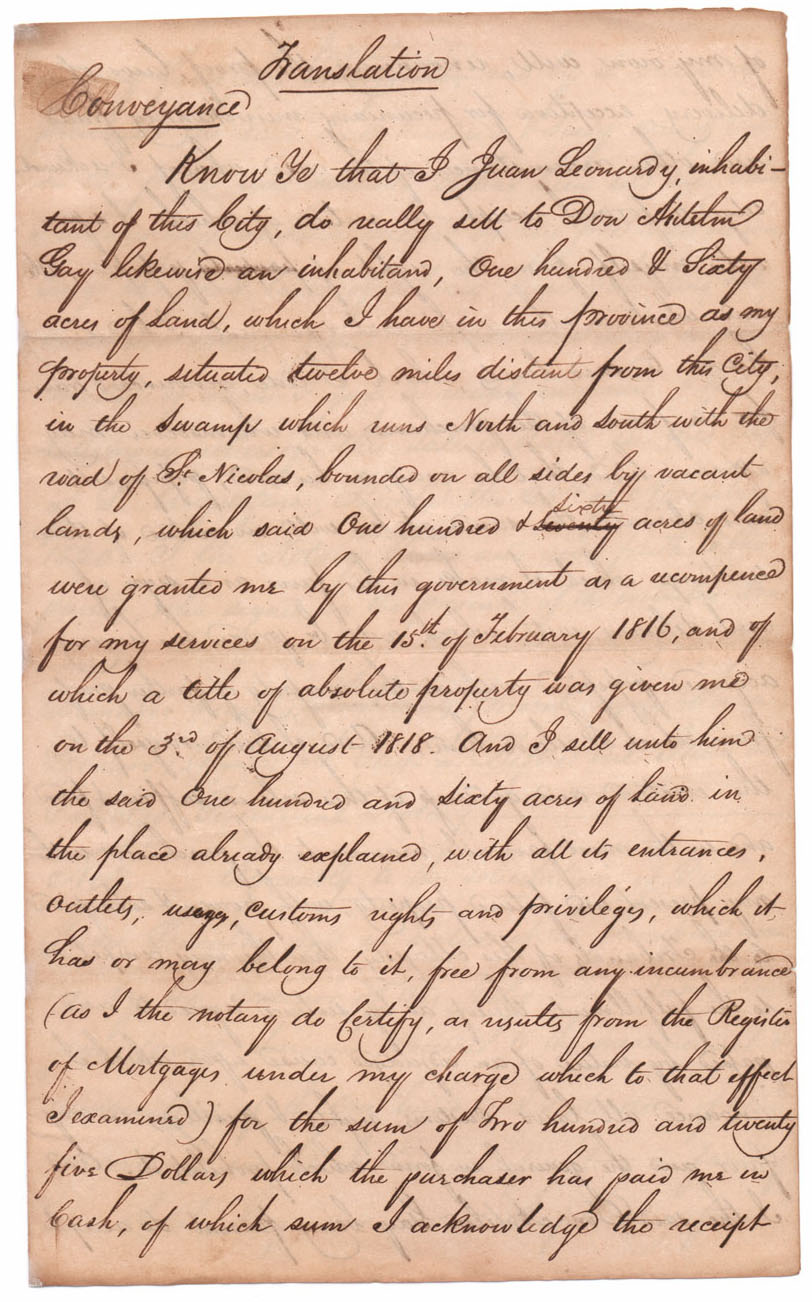 Translation
Conveyance
Know Ye that I Juan Leonardy, inhabi-
tant of this City, do really sell to Don Antelm
Gay likewise an inhabitand, One hundred & Sixty
acres of Land, which I have in this province as my
property, situated twelve miles distant from this City,
in the Swamp which runs North and South with the
road of St. Nicolas, bounded on all sides by vacant
lands, which said One hundred & seventy sixty acres of land
were granted me by this government as a recompence
for my services on the 15th. of February 1816, and of
which a title of absolute property was given me
on the 3rd of August 1818. And I sell unto him
the said One hundred and Sixty acres of land in
the place already explained, with all its entrances,
outlets, usages, customs rights and privileges, which it
has or may belong to it, free from any incumbrance
(as I the notary do Certify, as results from the Register
of Mortgages under my charge which to that effect
I examined) for the sum of Two hundred and twenty
five Dollars which the purchaser has paid me in
Cash, of which sum I acknowledge the receipt